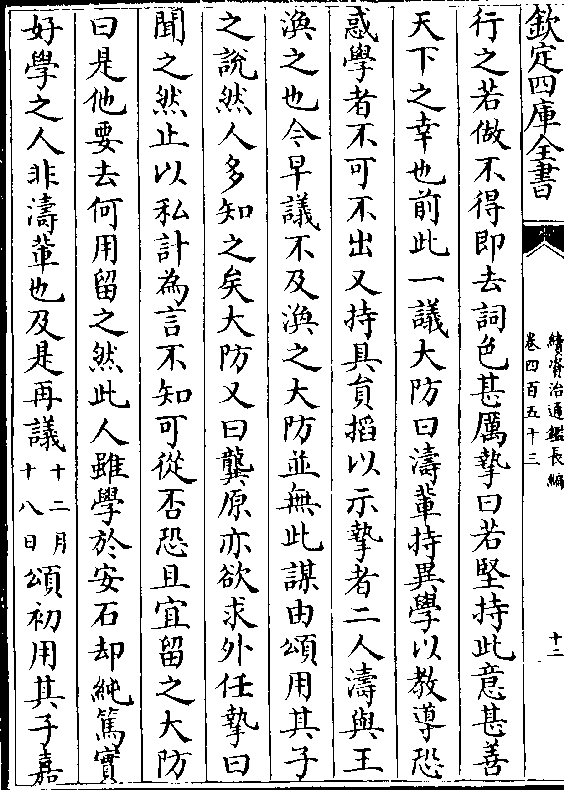 欽定四庫全書
續資治通鑑長編
卷四百五十三
十二
行之若做不得即去詞色甚厲摯曰若堅持此意甚善
天下之幸也前此一議大防曰濤輩持異學以教導恐
惑學者不可不出又持具員搯以示摯者二人濤與王
渙之也今早議不及渙之大防並無此謀由頌用其子
之說然人多知之矣大防又曰龔原亦欲求外任摯曰
聞之然止以私計為言不知可從否恐且宜留之大防
曰是他要去何用留之然此人雖學於安石却純篤實
好學之人非濤輩也及是再議十二月十八日頌初用其子嘉